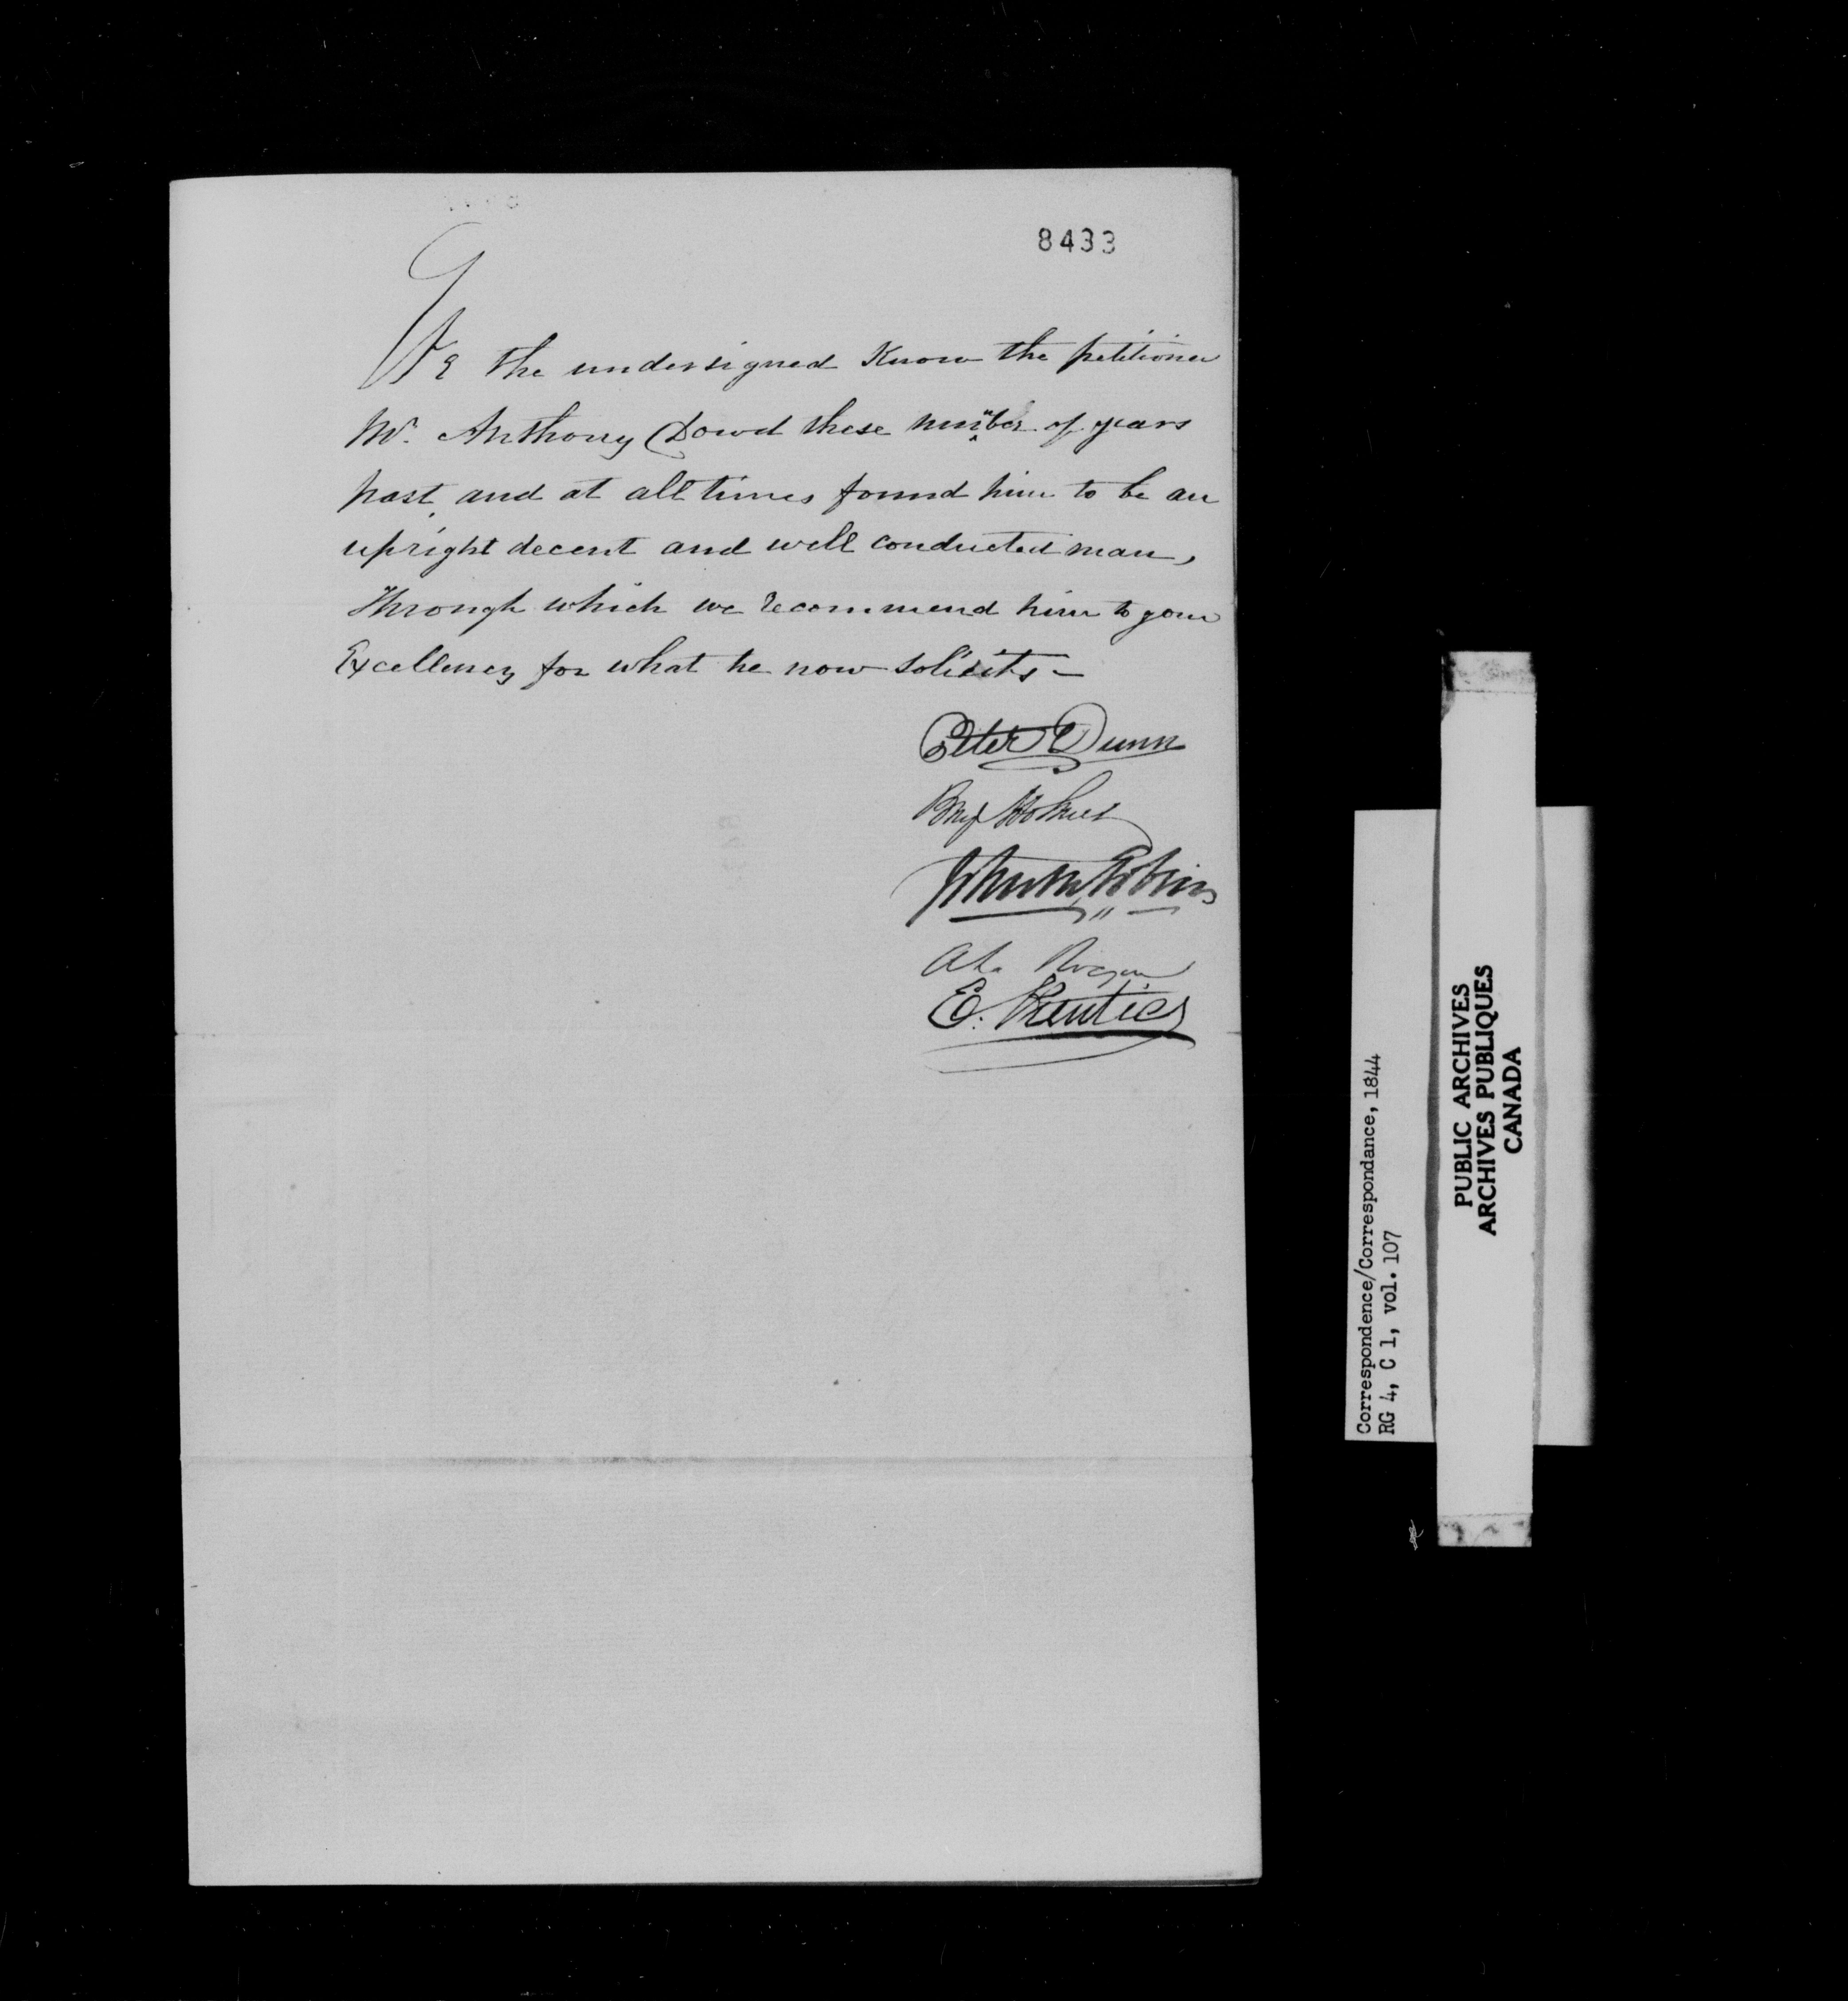 8433
We the undersigned Know the petitioner
Mr. Anthony Dowd these number of years
past, and at all times found him to be an
upright decent and well conducted man,
Through which we recommend him to your
Excellency for what he now solicits –
Peter Dunn
Benj Holmes
E. Prentice
Correspondence/Correspondance, 1844
RG 4, C 1, vol. 107
PUBLIC ARCHIVES
ARCHIVES PUBLIQUES
CANADA